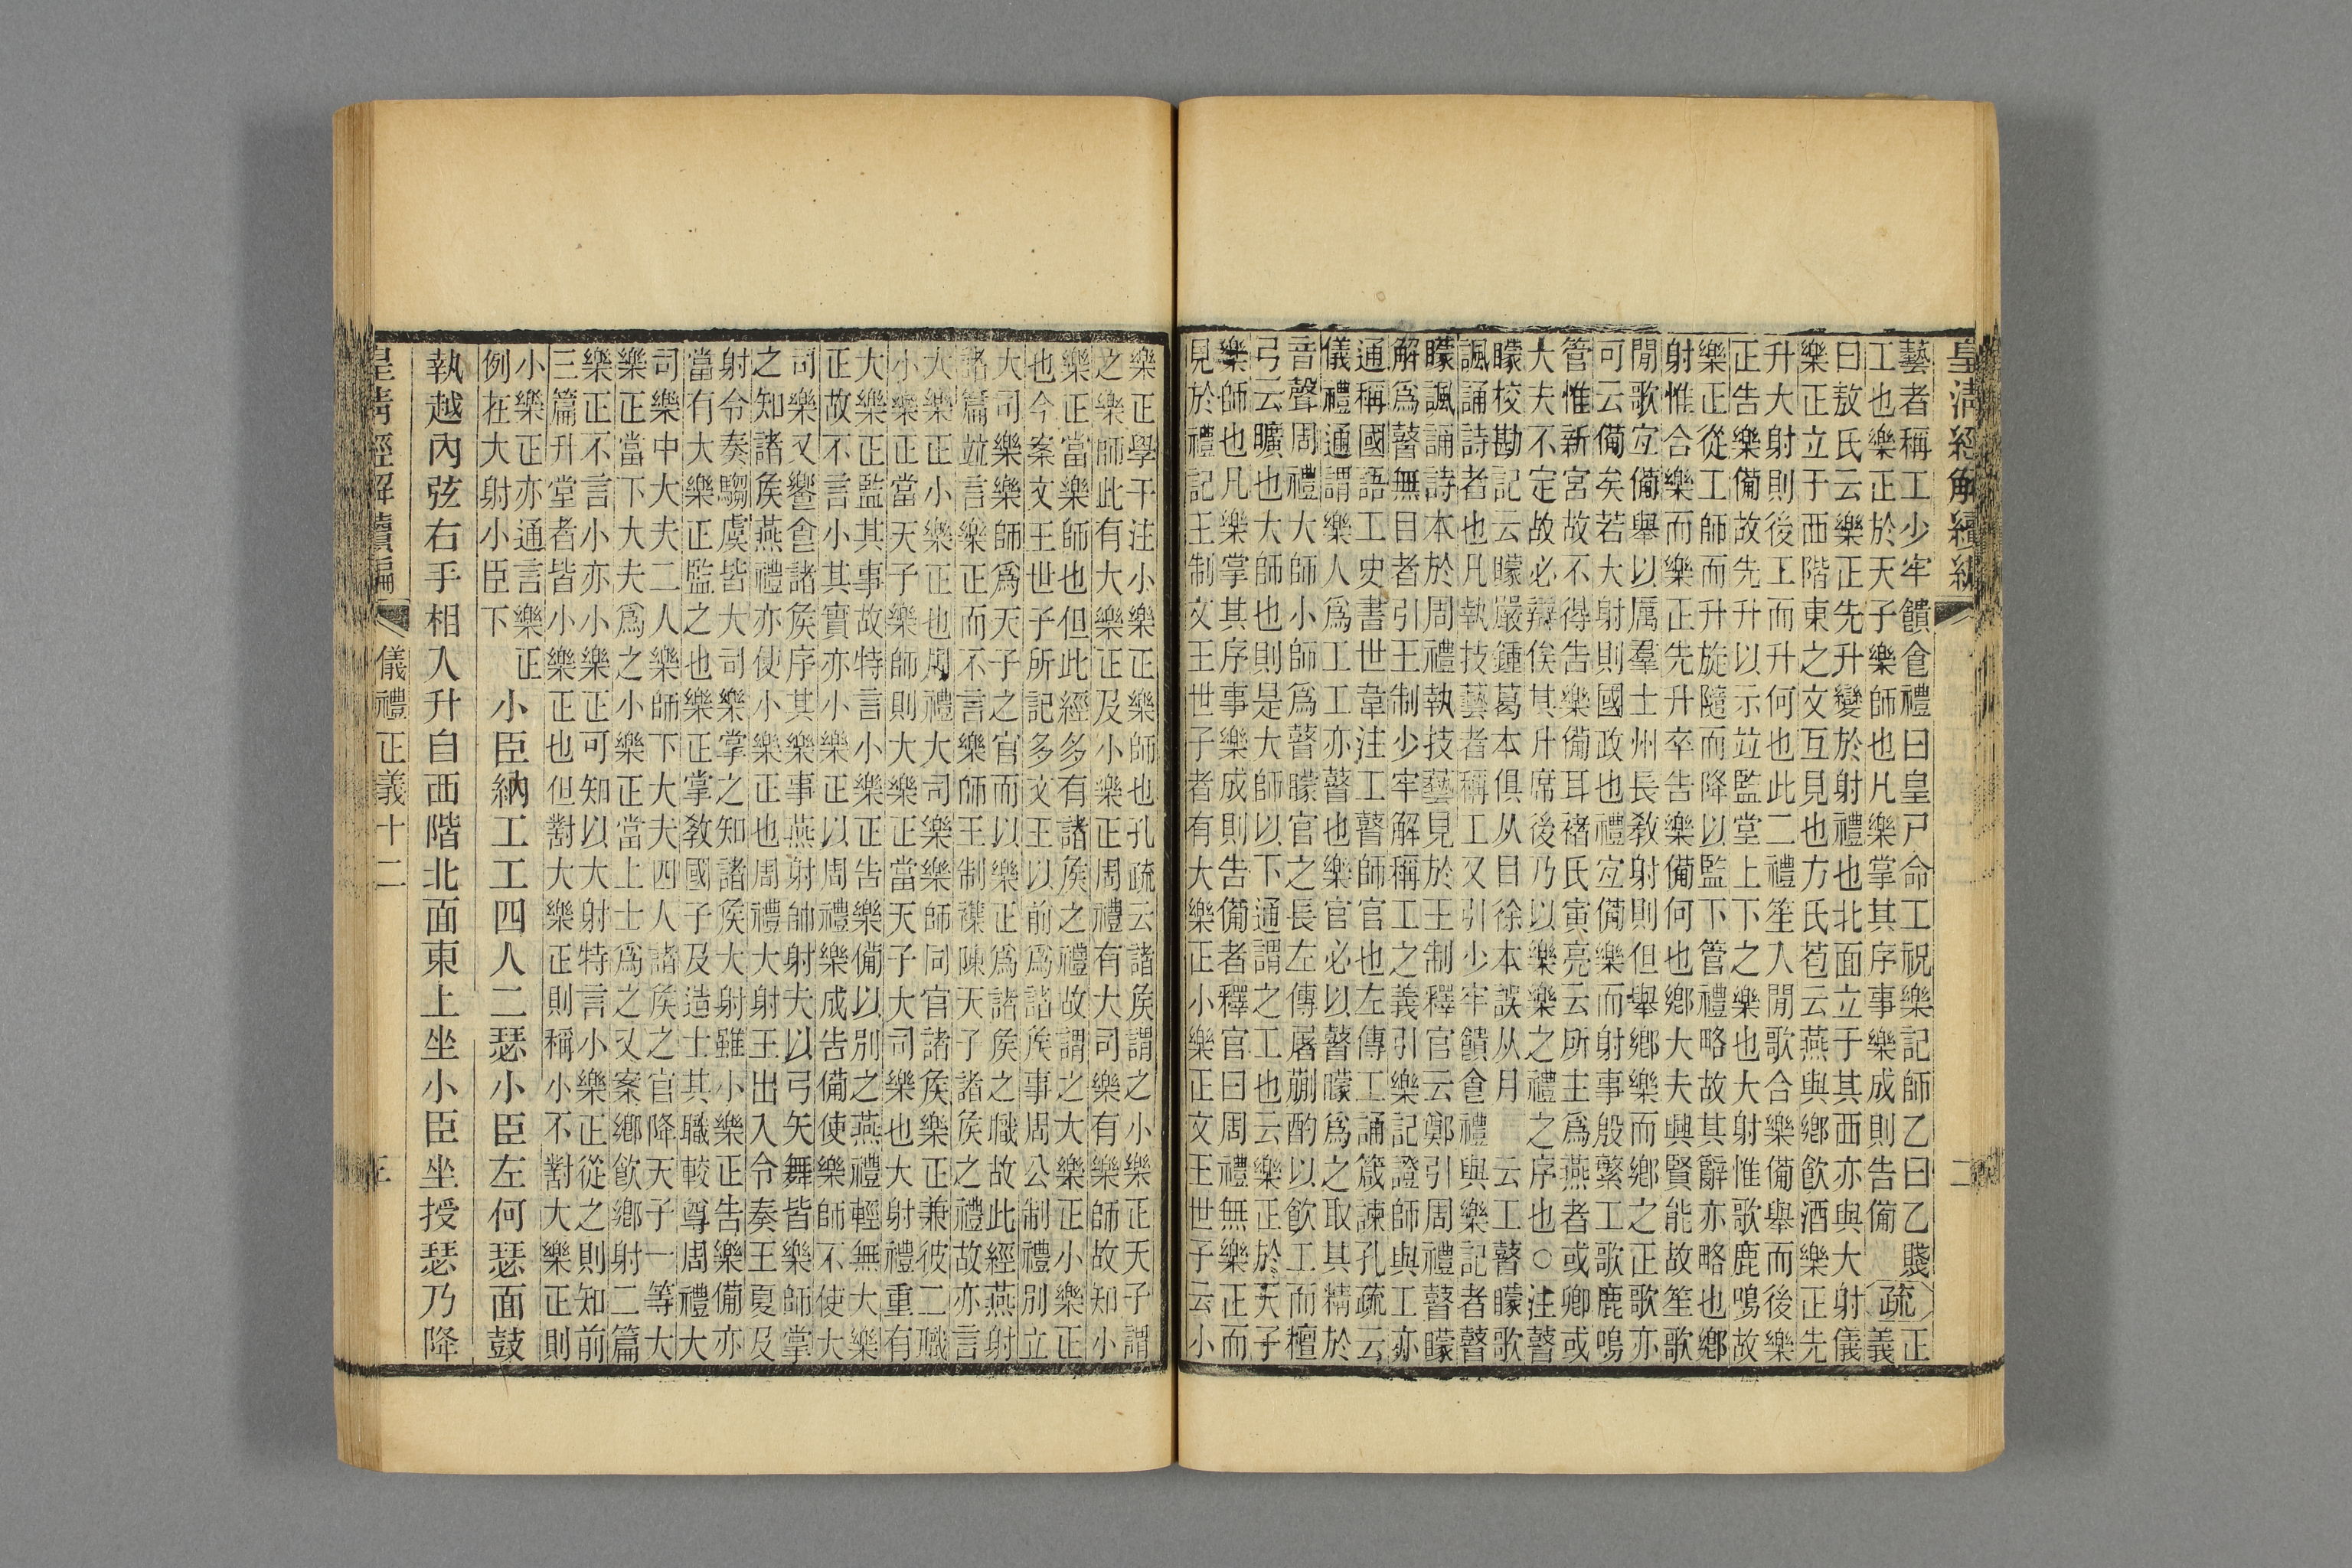 皇淸經解續編
二
藝者稱工少牢饋食禮曰皇尸命工祝樂記師乙曰乙賤
工也樂正於天子樂師也凡樂掌其序事樂成則告備
疏
正義
曰敖氏云樂正先升變於射禮也北面立于其西亦與大射儀
樂正立于西階東之文互見也方氏苞云燕與鄉飮酒樂正先
升大射則後工而升何也此二禮笙入閒歌合樂備舉而後樂
正告樂備故先升以示竝監堂上下之樂也大射惟歌鹿鳴故
樂正從工師而升旋隨而降以監下管禮略故其辭亦略也鄉
射惟合樂而樂正先升卒告樂備何也鄉大夫興賢能故笙歌
閒歌宐備舉以厲羣士州長敎射則但舉鄉樂而鄉之正歌亦
可云備矣若大射則國政也禮宐備樂而射事殷蘩工歌鹿鳴
管惟新宮故不得告樂備耳褚氏寅亮云所主爲燕者或卿或
大夫不定故必辯俟其升席後乃以樂樂之禮之序也○注瞽
矇校勘記云矇嚴鍾葛本俱从目徐本誤从月 云工瞽矇歌
諷誦詩者也凡執技藝者稱工又引少牢饋食禮與樂記者瞽
矇諷誦詩本於周禮執技藝見於王制釋官云鄭引周禮瞽矇
解爲瞽無目者引王制少牢解稱工之義引樂記證師與工亦
通稱國語工史書世韋注工瞽師官也左傳工誦箴諫孔疏云
儀禮通謂樂人爲工工亦瞽也樂官必以瞽矇爲之取其精於
音聲周禮大師小師爲瞽矇官之長左傳屠蒯酌以飮工而檀
弓云曠也大師也則是大師以下通謂之工也云樂正於天子
樂師也凡樂掌其序事樂成則告備者釋官曰周禮無樂正而
見於禮記王制文王世子者有大樂正小樂正文王世子云小
樂正學干注小樂正樂師也孔疏云諸侯謂之小樂正天子謂
之樂師此有大樂正及小樂正周禮有大司樂有樂師故知小
樂正當樂師也但此經多有諸侯之禮故謂之大樂正小樂正
也今案文王世子所記多文王以前爲諸侯事周公制禮別立
大司樂樂師爲天子之官而以樂正爲諸侯之職故此經燕射
諸篇竝言樂正而不言樂師王制襍陳天子諸侯之禮故亦言
大樂正小樂正也周禮大司樂樂師同官諸侯樂正兼彼二職
小樂正當天子樂師則大樂正當天子大司樂也大射禮重有
大樂正監其事故特言小樂正告樂備以別之燕禮輕無大樂
正故不言小其實亦小樂正以周禮樂成告備使樂師不使大
司樂又饗食諸侯序其樂事燕射帥射夫以弓矢舞皆樂師掌
之知諸侯燕禮亦使小樂正也周禮大射王出入令奏王夏及
射令奏騶虞皆大司樂掌之知諸侯大射雖小樂正告樂備亦
當有大樂正監之也樂正掌敎國子及造士其職較尊周禮大
司樂中大夫二人樂師下大夫四人諸侯之官降天子一等大
樂正當下大夫爲之小樂正當上士爲之又案鄉飮鄉射二篇
樂正不言小亦小樂正可知以大射特言小樂正從之則知前
三篇升堂者皆小樂正也但對大樂正則稱小不對大樂正則
小樂正亦通言樂正
例在大射小臣下
小臣納工工四人二瑟小臣左何瑟面鼓
執越內弦右手相入升自西階北面東上坐小臣坐授瑟乃降
皇淸經解續編
儀禮正義十二
三